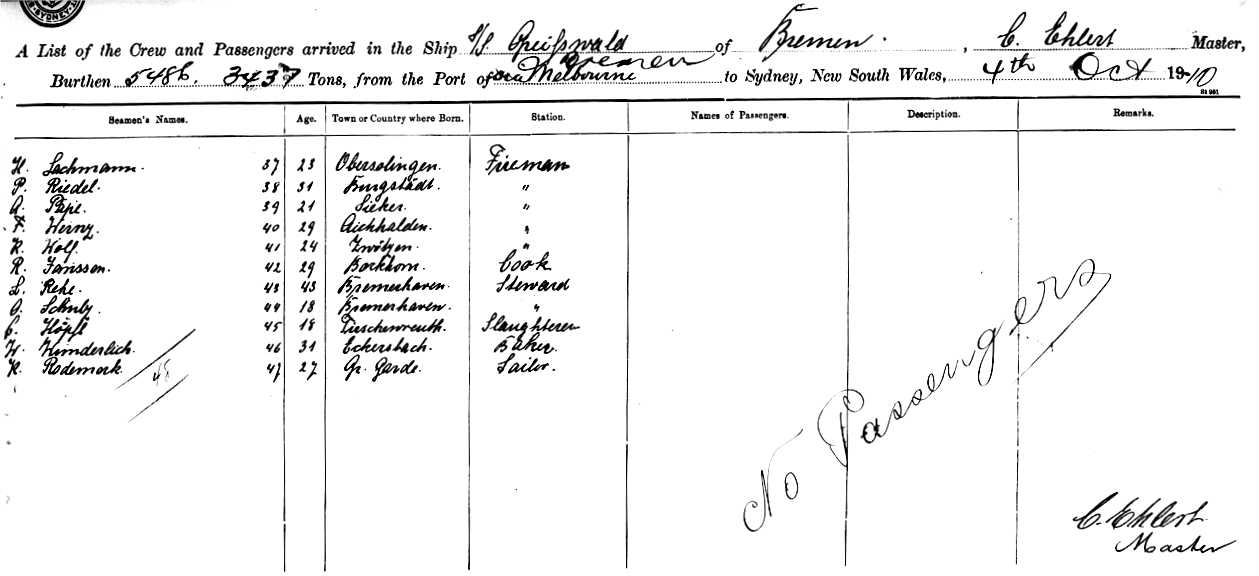 SYDNEY
A List of the Crew and Passengers arrived in the Ship S/S. Greifswald of Bremen. , C. Ehlert Master,
Bremen
Burthen 5486. 3437 Tons, from the Port of via Melbourne to Sydney, New South Wales, 4th Oct 1910
Seamen's Names. Age. Town or Country where Born. Station. Names of Passengers. Description. Remarks.
H. Lachmann. 37 23 Obersolingen. Fireman
P. Riedel. 38 31 Burgstädt. "
A. Pape. 39 21 Sieker. "
F. 40 29 Aichhalden. "
K. Wolf. 41 24 Zwötzen. "
R. Janssen. 42 29 Bockhorn. Cook
L. Rehe. 43 43 Bremerhaven. Steward
O. Schulz. 44 18 Bremerhaven. "
C. Höpfl 45 18 Tirschenreuth. Slaughterer
W. Kümderlich. 46 31 Eckersbach. Baker.
K. Rodemerk. 47 27 Gr. Garde. Sailor.
48
No Passengers
C. Ehlert
Master